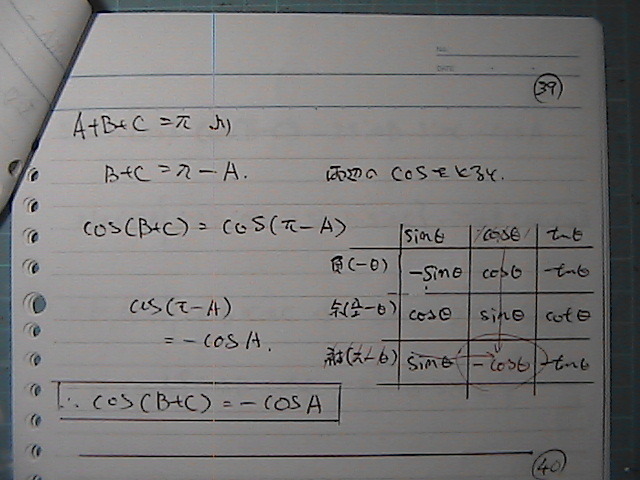 NO.
DATE
39
A+B+C=π より
B+C=π-A. 両辺の cosをとると.
cos(B+C)=cos(π-A)
sinθ cosθ tnθ
負(-θ) -sinθ cosθ -tnθ
余(π/2-θ) cosθ sinθ cotθ
cos(π-A)
=-cosA.
補(π-θ) sinθ -cosθ -tnθ
∴ cos(B+C)=-cosA
40